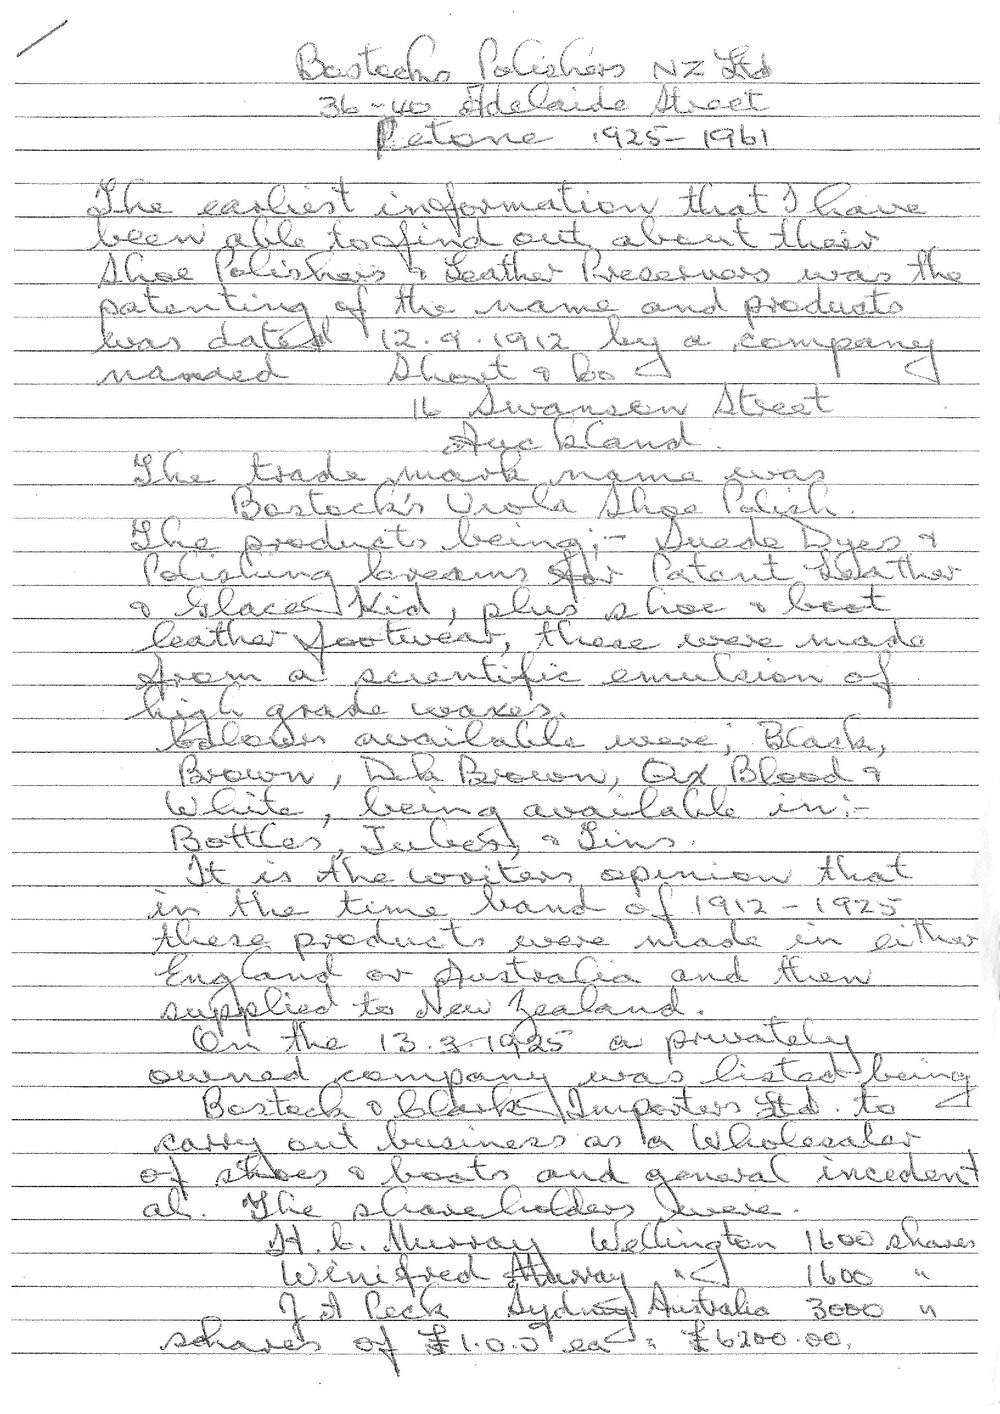 Bostocks Polishers NZ Ltd
36-40 Adelaide Street
Petone 1925-1961
The earliest information that I have
been able to find out about their
Shoe Polishers & Leather Preservers was the
patenting of the name and products
was dated 12.9.1912 by a company
named Short & Co
16 Swanson Street
Auckland.
The trade mark name was
Bostock's Viola Shoe Polish.
The products being;- Suede Dyes &
Polishing Creams for Patent Leather
& Glace Kid, plus shoe & boot
leather footwear, these were made
from a scientific emulsion of
high grade waxes.
Colours available were; Black,
Brown, Dk Brown, Ox Blood &
White, being available in:-
Bottles, Tubes, & Tins.
It is the writers opinion that
in the time band of 1912-1925
these products were made in either
England or Australia and then
supplied to New Zealand.
On the 13.3.1925 a privately
owned company was listed being
Bostock & Clark Importers Ltd. to
carry out business as a Wholesaler
of shoes & boots and general incedent
al. The shareholders were.
H. C. Murray Wellington 1600 shares
Winifred Murray " 1600 "
J A Peck Sydney Australia 3000 "
shares of £1.0.0 ea = £6200.00.